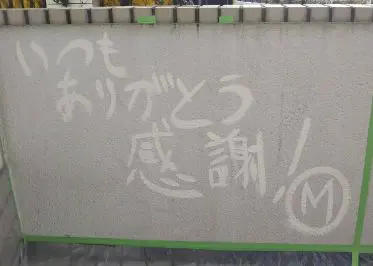 いつも
ありがとう
感謝!
M